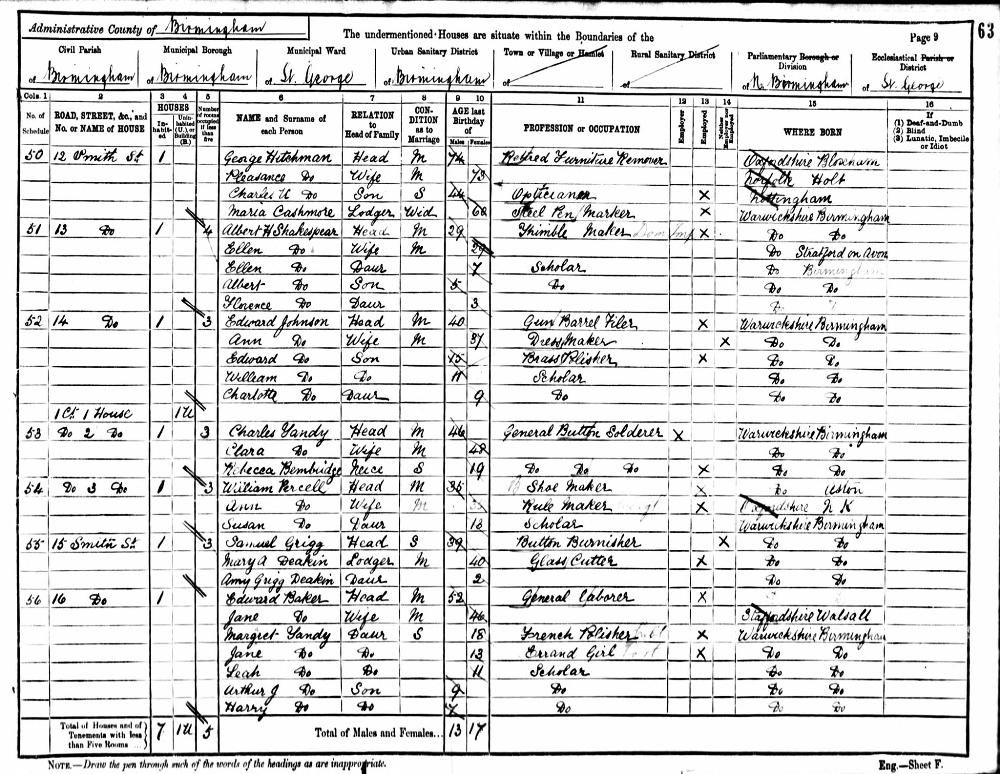 Administrative County of Birmingham
The undermentioned Houses are situate within the Boundaries of the
Page 9
63
Civil Parish
of Birmingham
Municipal Borough
of Birmingham
Municipal Ward
of St. George
Urban Sanitary District
of Birmingham
Town or Village or Hamlet
of
Rural Sanitary District
of
Parliamentary Borough or Division
of N. Birmingham
Ecclesiastical Parish or District
of St. George
Cols. 1 2 3 4 5 6 7 8 9 10 11 12 13 14 15 16
No. of Schedule
ROAD, STREET, &c., and No. or NAME of HOUSE
HOUSES
Inhabited
Uninhabited (U.) or Building (B.)
Number of rooms occupied if less than five
NAME and Surname of each Person
RELATION to Head of Family
CONDITION as to Marriage
AGE last Birthday of
Males
Females
PROFESSION or OCCUPATION
Employer
Employed
Neither Employer nor Employed
WHERE BORN
If
(1) Deaf-and-Dumb
(2) Blind
(3) Lunatic, Imbecile or Idiot
50 12 Smith St 1 George Hitchman Head M 74 Retired Furniture Remover Oxfordshire Bloxham
Pleasance Do Wife M 73 Norfolk Holt
Charles H Do Son S 44 Optician X Nottingham
Maria Cashmore Lodger Wid 60 Steel Pen Marker X Warwickshire Birmingham
51 13 Do 1 4 Albert H Shakespear Head M 29 Thimble Maker X Do Do
Ellen Do Wife M 29 Do Stratford on Avon
Ellen Do Daur 7 Scholar Do Birmingham
Albert Do Son 5 Do Do Do
Florence Do Daur 3
52 14 Do 1 3 Edward Johnson Head M 40 Gun Barrel Filer X Warwickshire Birmingham
Ann Do Wife M 37 Dress Maker X Do Do
Edward Do Son 15 Brass Polisher X Do Do
William Do Do 11 Scholar Do Do
Charlotte Do Daur 9 Do Do Do
1 Ct 1 House 1U
53 Do 2 Do 1 3 Charles Yandy Head M 46 General Button Solderer X Warwickshire Birmingham
Clara Do Wife M 48 Do Do
Rebecca Bembridge Neice S 19 Do Do Do X Do Do
54 Do 3 Do 1 3 William Percell Head M 35 Shoe Maker X Do Aston
Ann Do Wife M Rule Maker X Oxfordshire N K
Susan Do Daur 13 Scholar Warwickshire Birmingham
55 15 Smith St 1 3 Samuel Grigg Head S 39 Button Burnisher X Do Do
Mary A Deakin Lodger M 40 Glass Cutter X Do Do
Amy Grigg Deakin Daur 2 Do Do
56 16 Do 1 Edward Baker Head M 52 General Laborer X
Jane Do Wife M 46 Staffordshire Walsall
Margret Yandy Daur S 18 French Polisher X Warwickshire Birmingham
Jane Do Do 13 Errand Girl X Do Do
Leah Do Do 11 Scholar Do Do
Arthur J Do Son 9 Do Do Do
Harry Do Do 7 Do Do Do
Total of Houses and of Tenements with less than Five Rooms ... 7 1U 5 Total of Males and Females... 13 17
NOTE.—Draw the pen through such of the words of the headings as are inappropriate.
Eng.—Sheet F.